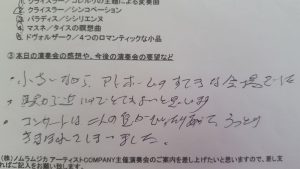 クライスラー/コレルリの主題による変奏曲
② クライスラー/シンコペーション
③ パラディス/シシリエンヌ
4 マスネ/タイスの瞑想曲
⑤ ドヴォルザーク/4つのロマンティックな小品
③ 本日の演奏会の感想や、今後の演奏会の要望など
・小さいながら、アットホームのすてきな会場でした
駅から近いのでとてもよいと思います
・コンサートは二人の息がぴったり
きき
してしまいました。
(株)ノムラムジカ アーティストCOMPANY主催演奏会のご案内を差し上げたいと思いますので、差し支
ればご記入をお願い致します。